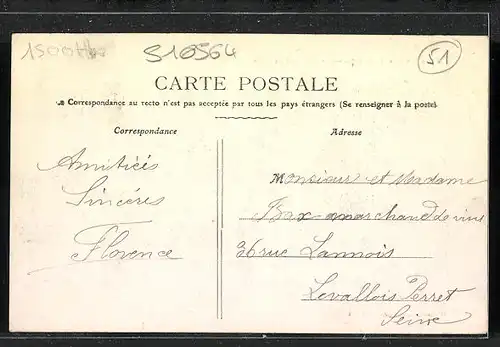 1500Hbs
S10564
51
CARTE POSTALE
La Correspondance au recto n'est pas acceptée par tous les pays étrangers (Se renseigner à la poste).
Correspondance
Adresse
Amitiés
Sincéres
Florence
Monsieur et Madame
Bax marchand de vins
36 rue Lannois
Levallois Perret
Seine